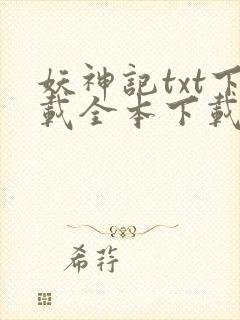 妖神記txt下
載全本下載
希荇